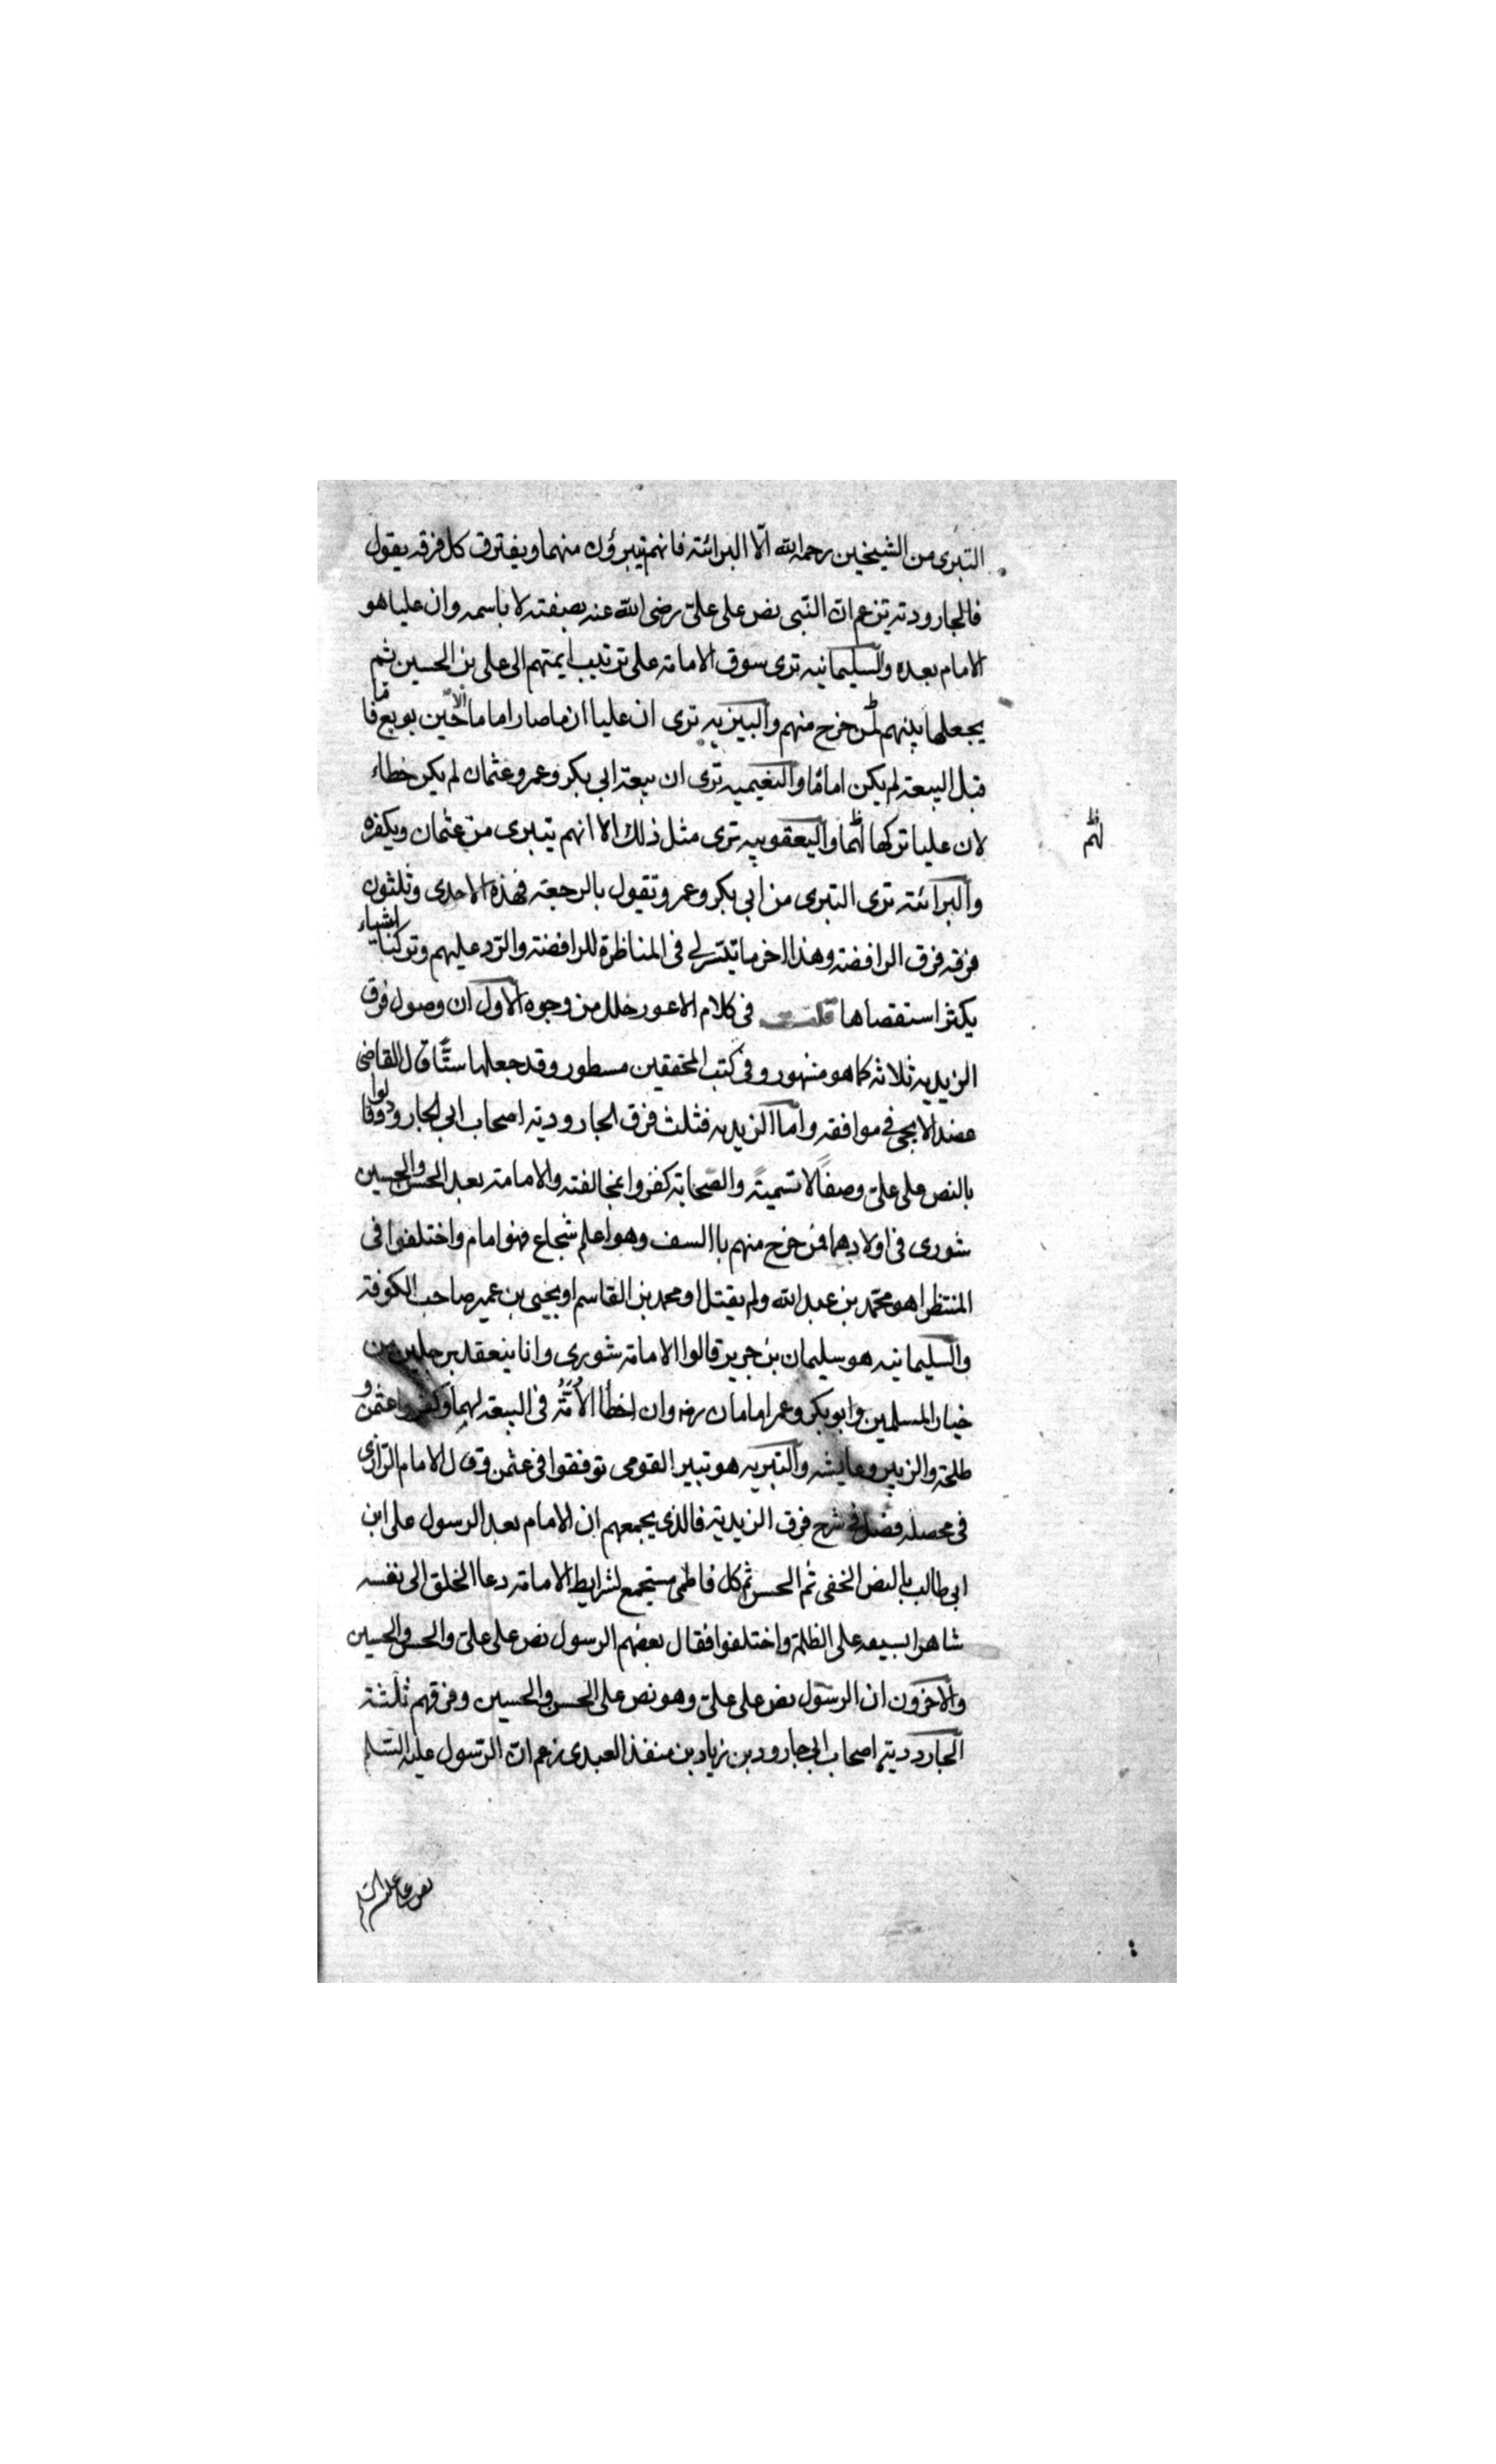 التبرى من الشيخين رحمه الله الّا البرائتة فانهم يتبرؤن منهما ويفترق كل فرقه يقول
فالجارودته تزعم ان النبى نص على علىّ رضى الله عنه بصفته لا باسمه وان عليا هو
الامام بعده والسليمانيه ترى سوق الامامة على ترتيب ايمتهم الى على بن الحسين ثم
يجعلها بينهم لمن خرج منهم والبيزيه ترى ان عليا ان ما صار اماما الا حين بويع فا ما
قبل البيعة لم يكن اماما والنعيميه ترى ان بيعة ابى بكر وعمر وعثمان لم يكن خطاء
لان عليا تركها لهما واليعقوبيه ترى مثل ذلك الا انهم يتبرى من عثمان ويكفره
لهم
والبرائتة ترى التبرى من ابى بكر وعمر وتقول بالرجعة فهذه الاحدى وثلثون
فرقه فرق الرافضة وهذا اخر ما تيسر لى فى المناظرة للرافضة والردّ عليهم وتركنا اشياء
يكثر استقصاها قلت فى كلام الاعور خلل من وجوه الاول ان وصول فرق
الزيديه ثلاثه كما هو مشهور وفى كتب المحققين مسطور وقد جعلها ستّا قال القاضى
عضد الايجى فى موافقه واما الزيديه فثلث فرق الجاروديه اصحاب ابى الجارود وقالوا
بالنص على علىّ وصفًا لا تسميتةً والصحابة كفروا بمخالفته والامامة بعد الحسن والحسين
شورى فى اولادهما فمن خرج منهم باالسف وهو اعلم شجاع فهو امام واختلفوا فى
المنتظر اهو محمد بن عبد الله ولم يقتل او محمد بن القاسم او يحيى بن عمير صاحب الكوفة
والسليمانيه هو سليمان بن جرير قالوا الامامة شورى وانا ينعقد برجلين من
خيار المسلمين وابو بكر وعمر امامان رضه وان اخطأ الاُمَّةُ فى البيعة لهما وكفروا عثمن و
طلحة والزبير وعايشه والتبريه هو تبير القومى توفقوا فى عثمن وقال الامام الرازى
فى محصله فصل فى شرح فرق الزيديه فالذى يجمعهم ان الامام بعد الرسول على ابن
ابى طالب بالنص الخفى ثم الحسن ثم كل فاطمى مستجمع لشرايط الامامة دعا الخلق الى نفسه
شاهرا بسيفه على الظلمة واختلفوا فقال بعضهم الرسول نص على علىّ والحسن والحسين
والاخرون ان الرسول نص على علىّ وهو نص على الحسن والحسين وفرقهم ثلثة
الجاردديه اصحاب ابى جارود بن زياد بن منقذ العبدى زعم ان الرسول عليه السلم
نص على